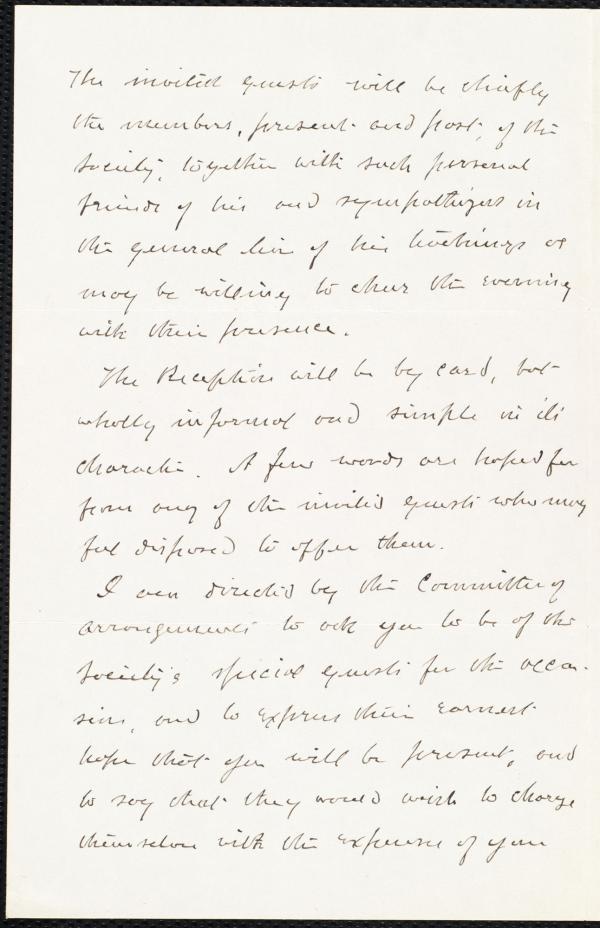 The invited guests will be chiefly
the members, present and past, of the
Society, together with such personal
friends of his and sympathizers in
the general line of his teachings as
may be willing to cheer the evening
with their presence.
The Reception will be by card, but
wholly informal and simple in its
character. A few words are hoped for
from any of the invited guests who may
feel disposed to offer them.
I am directed by the Committee of
arrangements to ask you to be of the
Society's special guests for the occa-
sion, and to express their earnest
hope that you will be present, and
to say that they would wish to charge
themselves with the expense of your